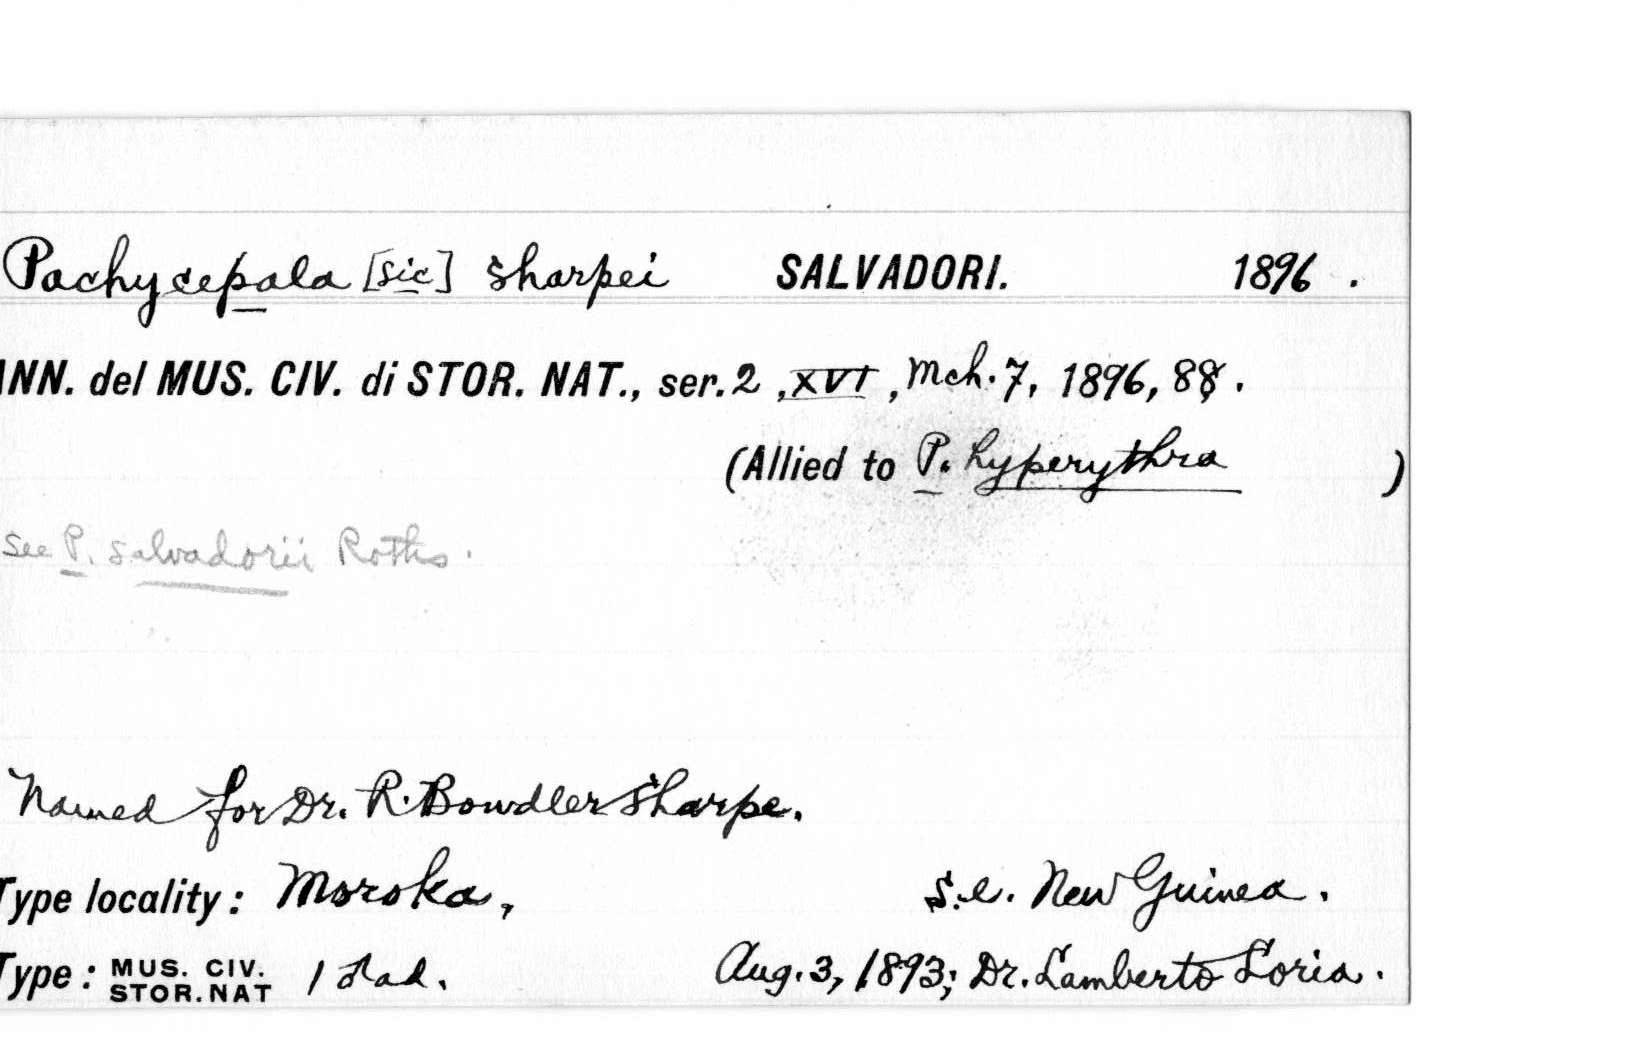 Pachycepala [sic] sharpei SALVADORI. 1896 .
ANN. del MUS. CIV. di STOR. NAT., ser. 2 , XVI , Mch. 7, 1896, 88.
(Allied to P. hyperythra )
See P. salvadorii Roths.
Named for Dr. R. Bowdler Sharpe.
Type locality: Moroka, S.e. New Guinea.
Type: MUS. CIV. STOR. NAT 1 ♂ ad. Aug. 3, 1893; Dr. Lamberto Loria.